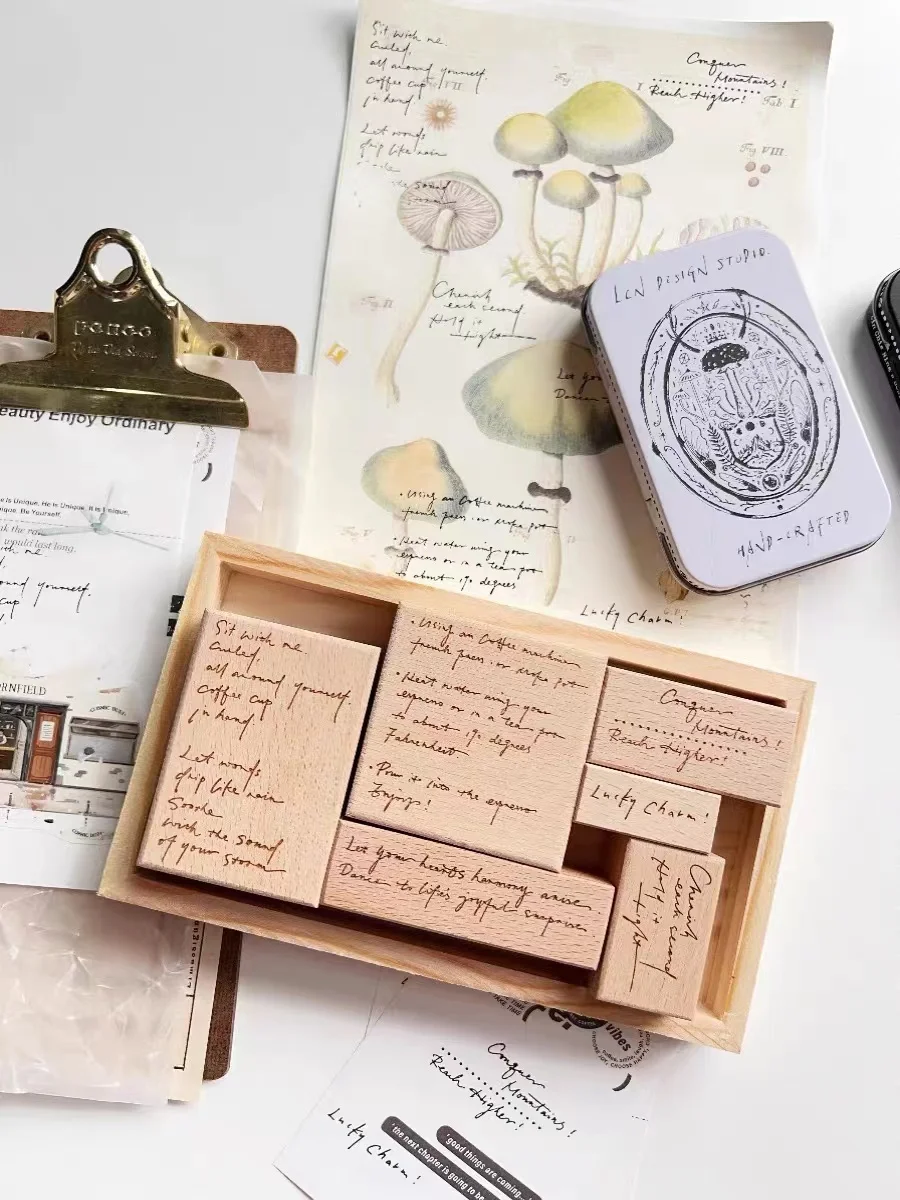 Sit with me.
Curled,
all around yourself.
Coffee cup
in hand!
Let words
drip like rain
the sound
Conquer
Mountains!
Reach Higher!
Fig
I
Fab. I
Fig VIII.
Cherish
each second
Hold it
tight
Fig II
Let yo
Dance
• Using an Coffee machine
french press, or moka pot
• Heat water using your
espresso or in a tea pot
to about 190 degrees
Fig V
Lucky Charm!
LCN DESIGN STUDIO.
HAND-CRAFTED
eauty Enjoy Ordinary
e is Unique. He is Unique. It is Unique.
Be Yourself.
would last long.
th me
ound yourself.
cup
RNFIELD
Sit with me
Curled,
all around yourself.
Coffee cup
in hand!
Let words
drip like rain
Soothe
with the sound
of your storm
• Using an Coffee machine
french press, or moka pot
• Heat water using your
espresso or in a tea pot
to about 190 degrees
Fahrenheit
• Pour it into the espresso
Enjoy!
Conquer
Mountains!
Reach Higher!
Lucky Charm!
Let your hearts harmony arise.
Dance to life's joyful surprises
Cherish
each second
Hold it
tight
TAKE TIME
vibes
CHOOSE JOY, CHOOSE HAPPY,
Conquer
Mountains!
Reach Higher!
Lucky Charm!
good things are coming...
the next chapter is going to be